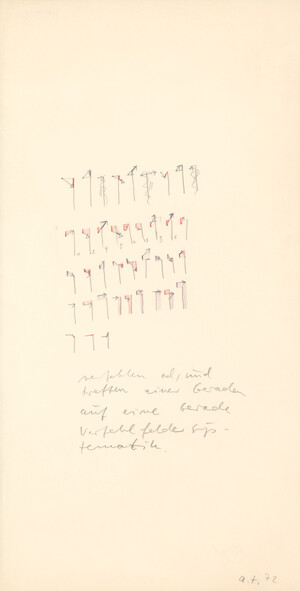 verfehlen und
treffen einer geraden
auf eine gerade
verfehlfelder sys-
tematik
a.t. 72